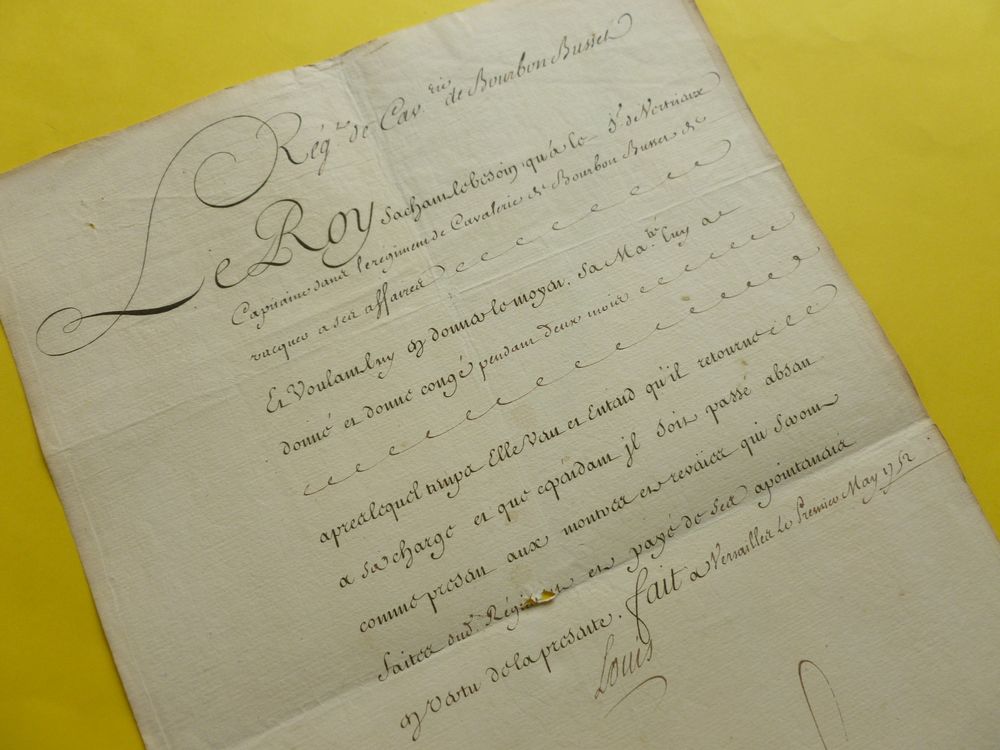 Régt de Cavrie de Bourbon Busset
Le Roy sachant le besoin qu'a le Sr de
Capitaine dans le regiment de Cavalerie de Bourbon Busset de
vacquer a ses affaires
Et Voulant luy en donner le moyen, sa Maté luy a
donné et donne congé pendant deux mois
apres lequel temps Elle Veut et Entend qu'il retourne
a sa charge et que cependant jl soit passé absent
comme present aux montres et reveües qui seront
faites dud Régiment et payé de ses apointemens
en vertu de la presente. fait a Versailles le Premier May 1752
Louis